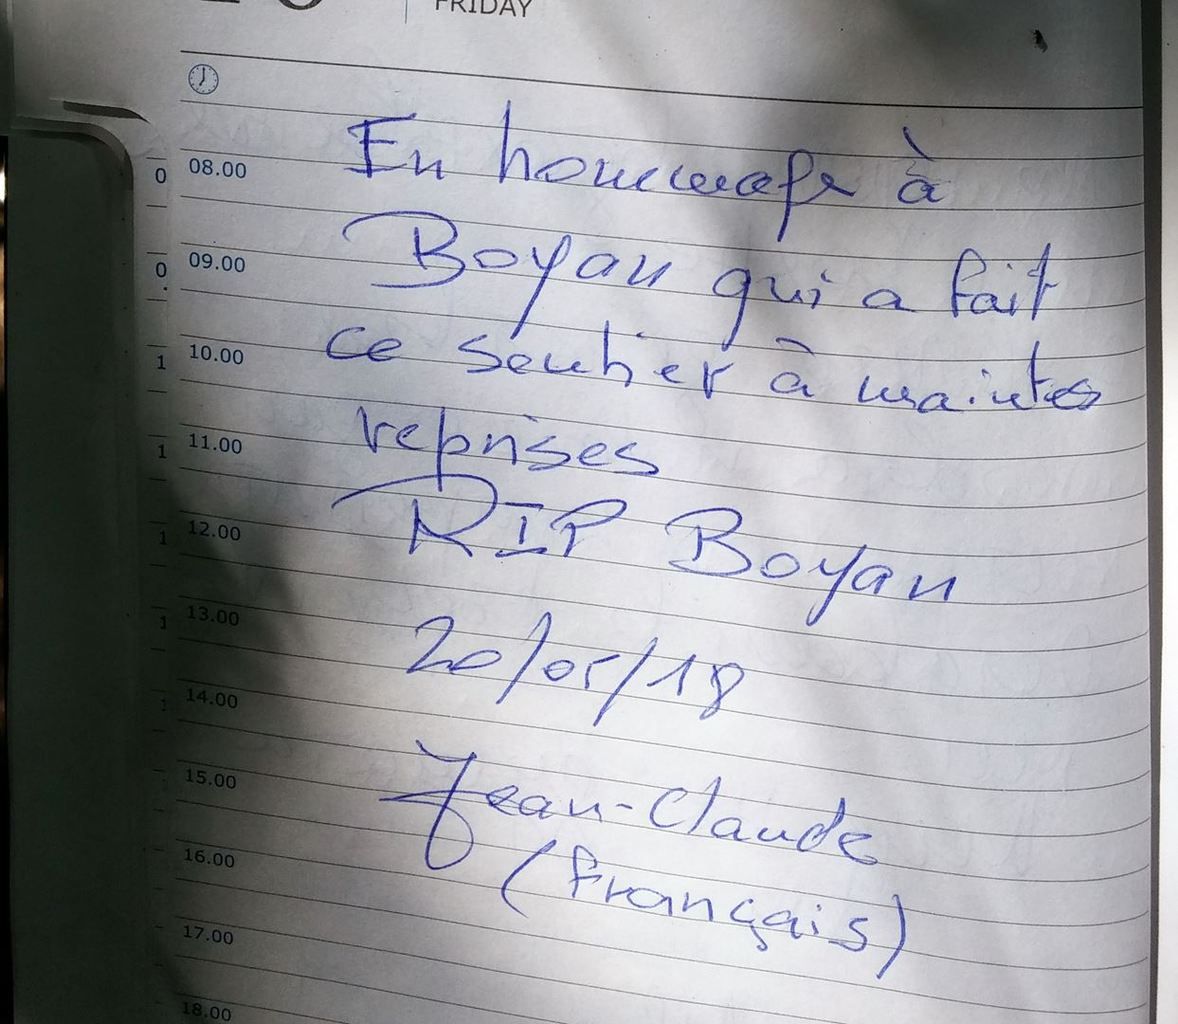 FRIDAY
En hommage à
0 08.00
Boyan qui a fait
0 09.00
ce sentier à maintes
1 10.00
reprises
1 11.00
RIP Boyan
1 12.00
20/05/18
1 13.00
1 14.00
Jean-Claude
15.00
(français)
16.00
17.00
18.00